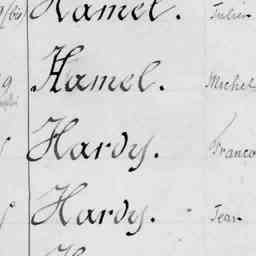 Hamel. Julien
Hamel. Michel
Hardy. Franço
Hardy. Jean